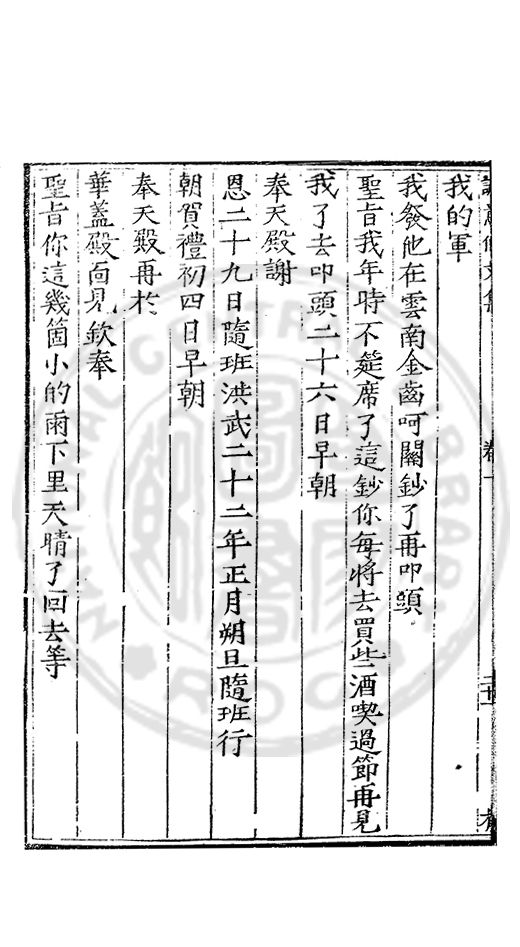 我的軍
我發他在雲南金齒呵關鈔了再叩頭
聖旨我年時不筵席了這鈔你每將去買些酒喫過節再見
我了去叩頭二十六日早朝
奉天殿謝
恩二十九日隨班洪武二十二年正月朔旦隨班行
朝賀禮初四日早朝
奉天殿再於
華蓋殿面見欽奉
聖旨你這幾箇小的雨下里天晴了回去等